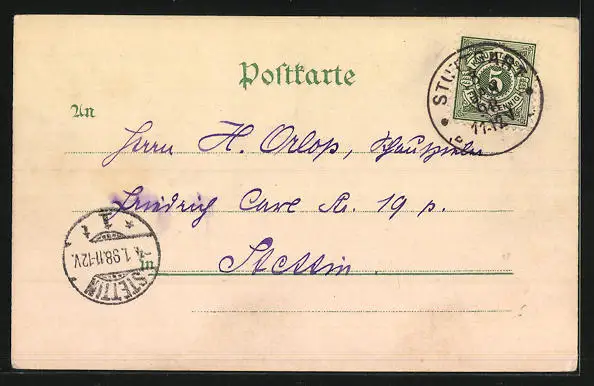 Postkarte
STUTTGART
5
11-12V
An
Herrn H. Orlop, Schauspieler
Friedrich Carl Str. 19 p.
1
4.1.98.11-12V.
STETTIN
in Stettin